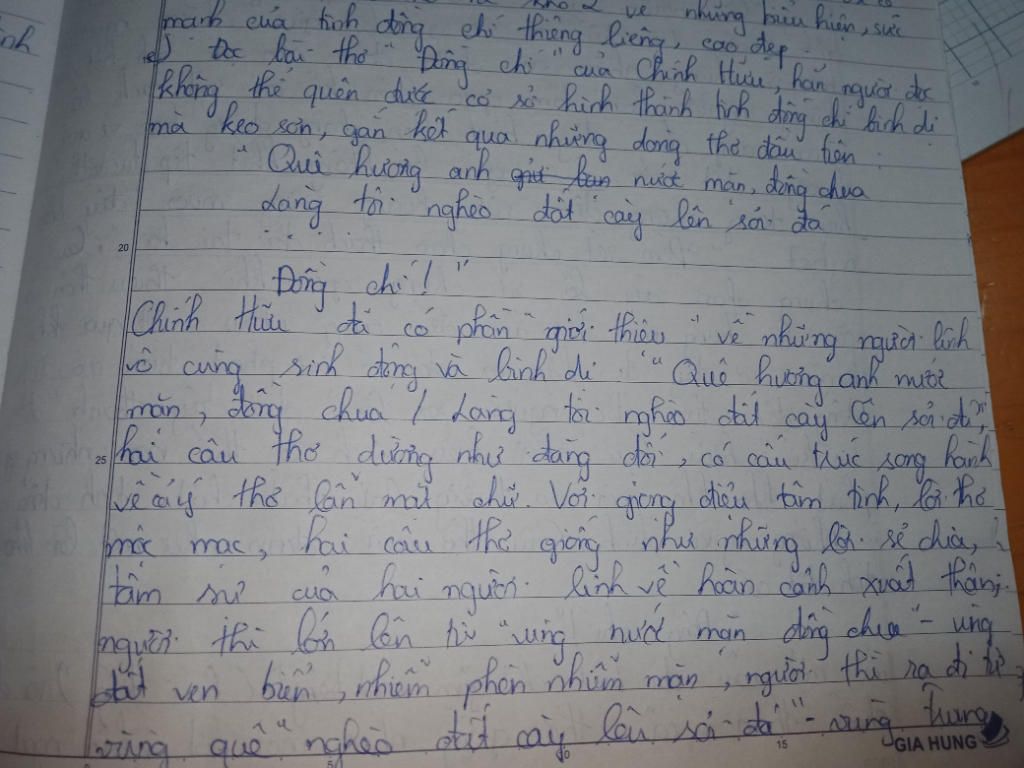 về những biểu hiện, sức
mạnh của tình đồng chí thiêng liêng, cao đẹp.
Đọc bài thơ "Đồng chí" của Chính Hữu, hẳn người đọc
không thể quên được cơ sở hình thành tình đồng chí bình dị
mà keo sơn, gắn kết qua những dòng thơ đầu tiên
"Quê hương anh nước mặn, đồng chua
Làng tôi nghèo đất cày lên sỏi đá
. . . .
20
Đồng chí!"
Chính Hữu đã có phần "giới thiệu" về những người lính
vô cùng sinh động và bình dị "Quê hương anh nước
mặn, đồng chua / Làng tôi nghèo đất cày lên sỏi đá",
25 hai câu thơ dường như đăng đối, có cấu trúc song hành
về cả ý thơ lẫn mặt chữ. Với giọng điệu tâm tình, lời thơ
mộc mạc, hai câu thơ giống như những lời sẻ chia,
tâm sự của hai người lính về hoàn cảnh xuất thân,
người thì lớn lên từ "vùng nước mặn đồng chua" - vùng
đất ven biển, nhiễm phèn nhiễm mặn, người thì ra đi từ
vùng quê "nghèo đất cày lên sỏi đá" - vùng trung
5 10 15
GIA HUNG